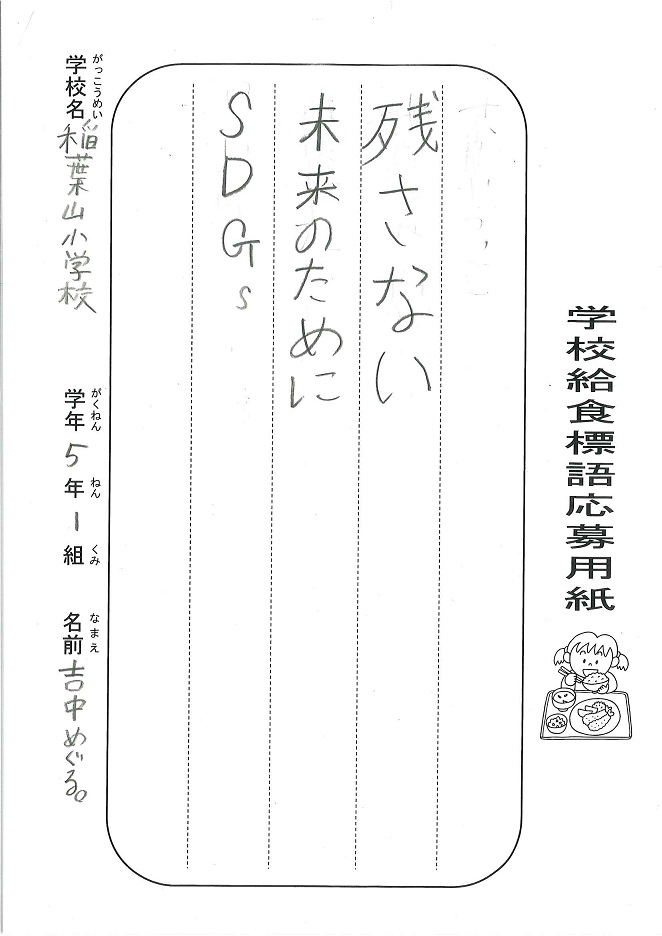 学校給食標語応募用紙
残さない
未来のために
SDGs
がっこうめい
学校名 稲葉山小学校
がくねん ねん くみ
学年 5年 1組
なまえ
名前 吉中めぐる。